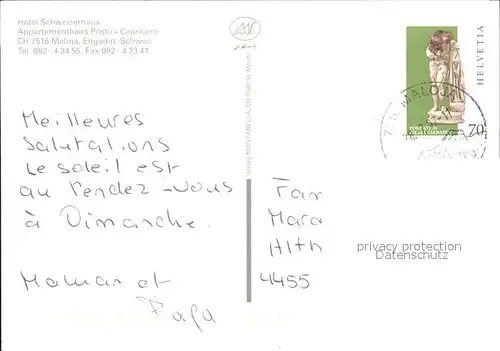 Hotel Schweizerhaus
Appartementhaus Posta & Capricorn
CH 7516 Maloja, Engadin, Schweiz
Tel. 082 - 4 34 55, Fax 082 - 4 33 41
HELVETIA
MALOJA
70
Verlag MONTABELLA, CH 7500 St. Moritz
Meilleures
salutations
Le soleil est
au rendez-vous
à Dimanche.
Maman et
Papa
Fam
Mara
Hlth
4455
privacy protection
Datenschutz